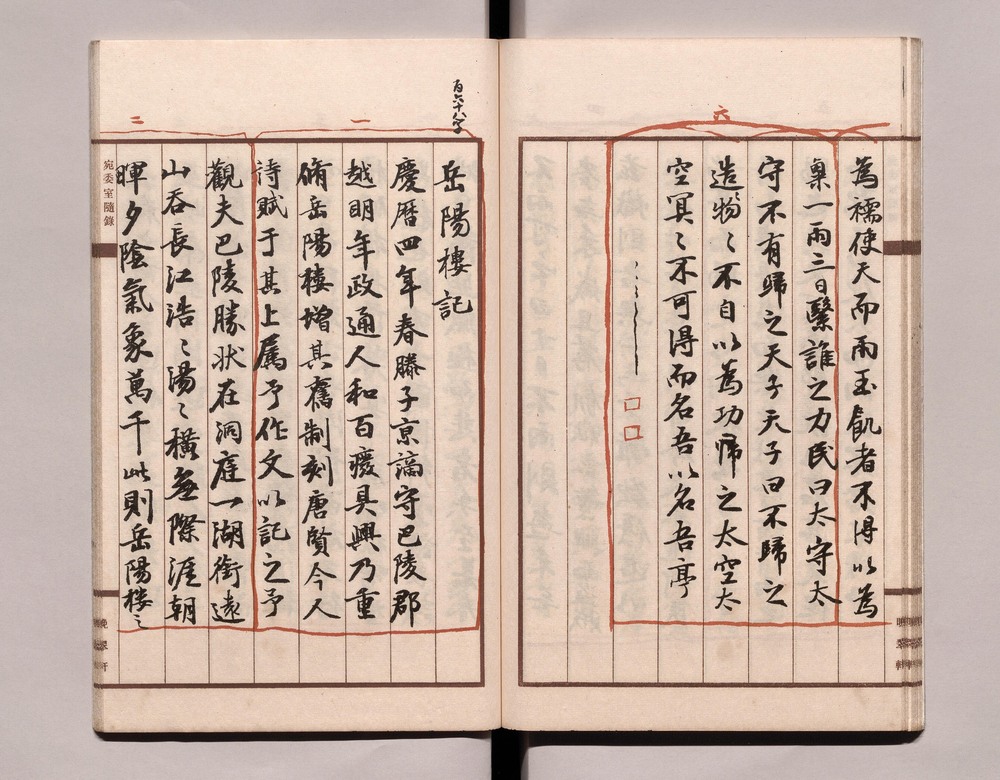 六
為襦使天而雨玉飢者不得以為
粟一雨三日繄誰之力民曰太守太
守不有歸之天子天子曰不歸之
造物造物不自以為功歸之太空太
空冥〻不可得而名吾以名吾亭
百六十八字
一
二
岳陽樓記
慶曆四年春滕子京謫守巴陵郡
越明年政通人和百廢具興乃重
脩岳陽樓增其舊制刻唐賢今人
詩賦于其上属予作文以記之予
觀夫巴陵勝狀在洞庭一湖銜遠
山吞長江浩〻湯〻橫無際涯朝
暉夕陰氣象萬千此則岳陽樓之
宛委室隨錄
晚翠軒